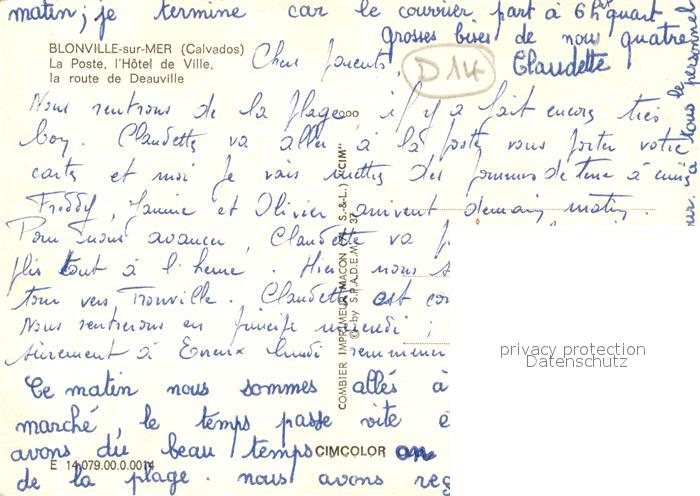 matin; je termine car le courrier part à 6h quart
grosses bises de nous quatre
Claudette
BLONVILLE-sur-MER (Calvados)
La Poste, l'Hôtel de Ville,
la route de Deauville
D14
Chers parents,
Nous rentrons de la plage, il y a fait encore très
bon. Claudette va aller à la poste vous porter votre
carte et moi je vais mettre des pommes de terre à cuire
Freddy, Janine et Olivier arrivent demain matin.
Pour nous avancer, Claudette va
tout à l'heure. Hier nous
tour vers Trouville. Claudette est
Nous rentrerons en principe mercredi;
sûrement à Evreux lundi
Ce matin nous sommes allés à
marché, le temps passe vite
avons du beau temps on
de la plage. nous avons
à tous le personnel
COMBIER IMPRIMEUR MACON (S.-&-L.) "CIM"
© by S.P.A.D.E.M. 37
CIMCOLOR
E 14.079.00.0.0014
privacy protection
Datenschutz